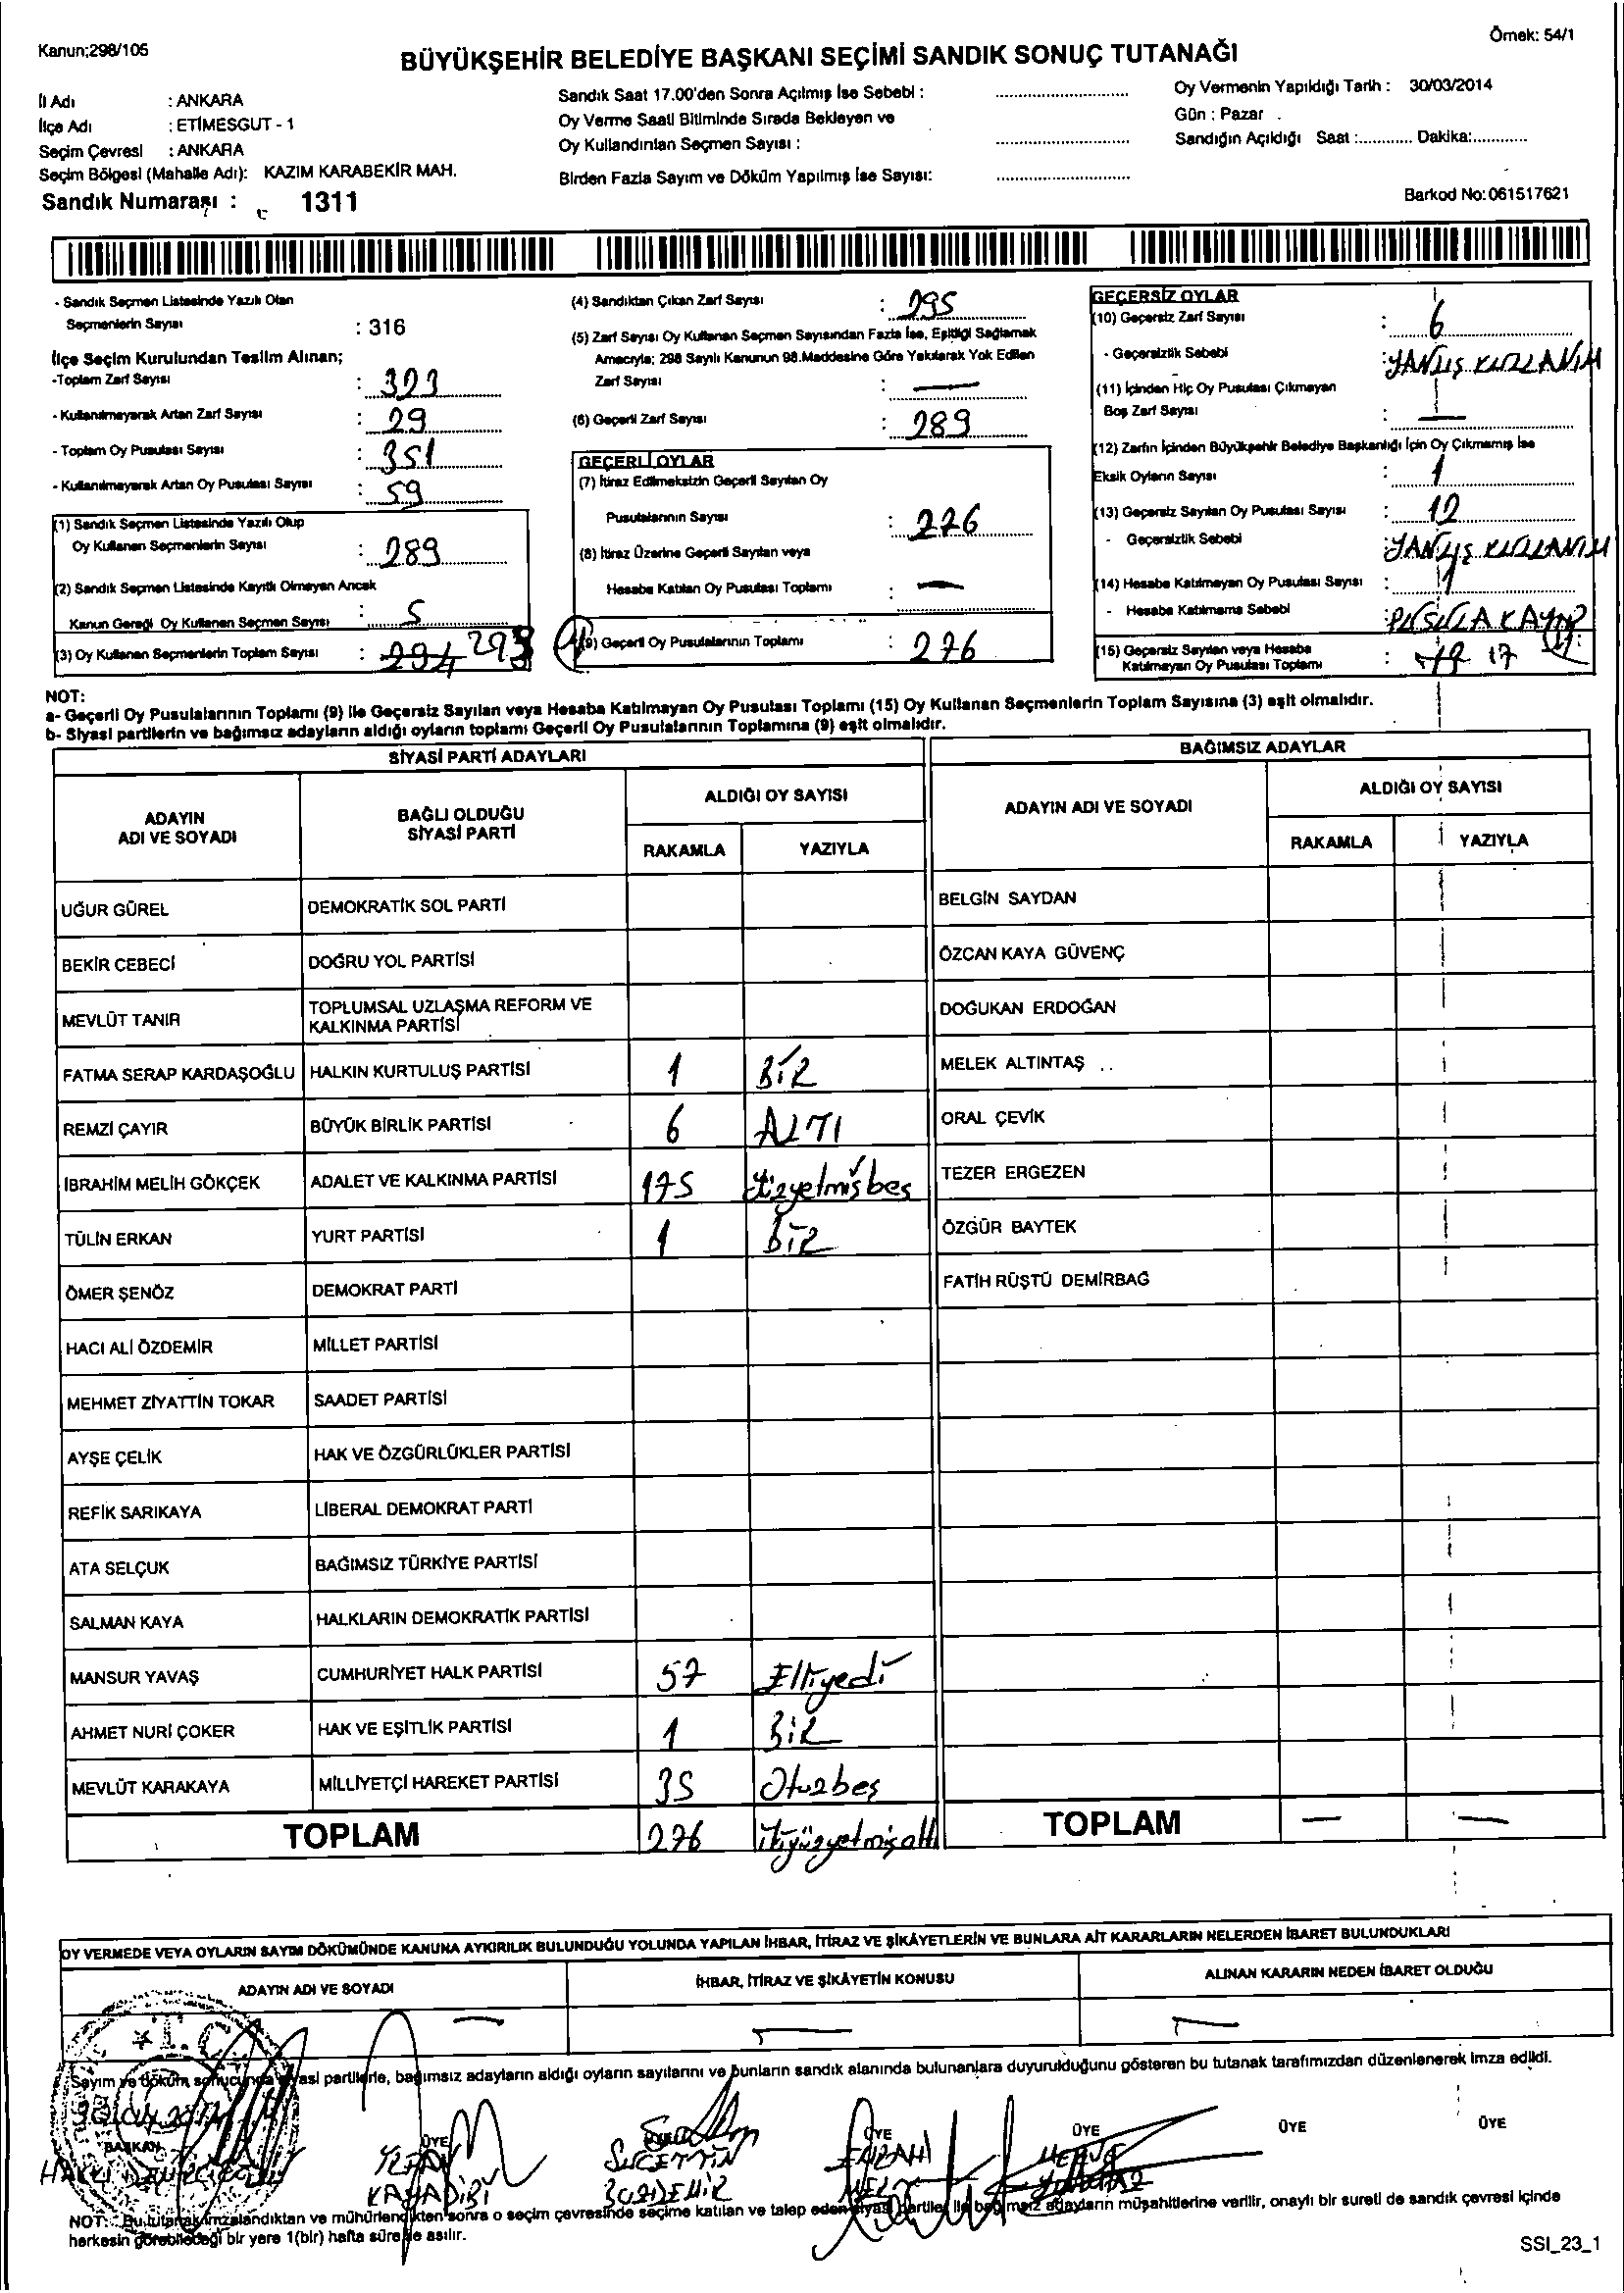 Kanun;298/105
Örnek: 54/1
BÜYÜKŞEHİR BELEDİYE BAŞKANI SEÇİMİ SANDIK SONUÇ TUTANAĞI
İl Adı : ANKARA
İlçe Adı : ETİMESGUT - 1
Seçim Çevresi : ANKARA
Seçim Bölgesi (Mahalle Adı): KAZIM KARABEKİR MAH.
Sandık Numarası : 1311
Sandık Saat 17.00'den Sonra Açılmış İse Sebebi :
Oy Verme Saati Bitiminde Sırada Bekleyen ve
Oy Kullandırılan Seçmen Sayısı :
Birden Fazla Sayım ve Döküm Yapılmış İse Sayısı:
Oy Vermenin Yapıldığı Tarih : 30/03/2014
Gün : Pazar
Sandığın Açıldığı Saat :............ Dakika:............
Barkod No:061517621
- Sandık Seçmen Listesinde Yazılı Olan
Seçmenlerin Sayısı : 316
İlçe Seçim Kurulundan Teslim Alınan;
-Toplam Zarf Sayısı : 323
- Kullanılmayarak Artan Zarf Sayısı : 29
- Toplam Oy Pusulası Sayısı : 351
- Kullanılmayarak Artan Oy Pusulası Sayısı : 59
(1) Sandık Seçmen Listesinde Yazılı Olup
Oy Kullanan Seçmenlerin Sayısı : 289
(2) Sandık Seçmen Listesinde Kayıtlı Olmayan Ancak
Kanun Gereği Oy Kullanan Seçmen Sayısı : 5
(3) Oy Kullanan Seçmenlerin Toplam Sayısı : 294 293
(4) Sandıktan Çıkan Zarf Sayısı : 295
(5) Zarf Sayısı Oy Kullanan Seçmen Sayısından Fazla İse, Eşitliği Sağlamak
Amacıyla; 298 Sayılı Kanunun 98.Maddesine Göre Yakılarak Yok Edilen
Zarf Sayısı : —
(6) Geçerli Zarf Sayısı : 289
GEÇERLİ OYLAR
(7) İtiraz Edilmeksizin Geçerli Sayılan Oy
Pusulalarının Sayısı : 276
(8) İtiraz Üzerine Geçerli Sayılan veya
Hesaba Katılan Oy Pusulası Toplamı : —
(9) Geçerli Oy Pusulalarının Toplamı : 276
GEÇERSİZ OYLAR
(10) Geçersiz Zarf Sayısı : 6
- Geçersizlik Sebebi : YANLIŞ KULLANIM
(11) İçinden Hiç Oy Pusulası Çıkmayan
Boş Zarf Sayısı : —
(12) Zarfın İçinden Büyükşehir Belediye Başkanlığı İçin Oy Çıkmamış İse
Eksik Oyların Sayısı : 1
(13) Geçersiz Sayılan Oy Pusulası Sayısı : 12
- Geçersizlik Sebebi YANLIŞ KULLANIM
(14) Hesaba Katılmayan Oy Pusulası Sayısı : 1
- Hesaba Katılmama Sebebi : PUSULA KAYIP
(15) Geçersiz Sayılan veya Hesaba
Katılmayan Oy Pusulası Toplamı : 17
NOT:
a- Geçerli Oy Pusulalarının Toplamı (9) ile Geçersiz Sayılan veya Hesaba Katılmayan Oy Pusulası Toplamı (15) Oy Kullanan Seçmenlerin Toplam Sayısına (3) eşit olmalıdır.
b- Siyasi partilerin ve bağımsız adayların aldığı oyların toplamı Geçerli Oy Pusulalarının Toplamına (9) eşit olmalıdır.
SİYASİ PARTİ ADAYLARI
ADAYIN ADI VE SOYADI
BAĞLI OLDUĞU SİYASİ PARTİ
ALDIĞI OY SAYISI
RAKAMLA YAZIYLA
UĞUR GÜREL DEMOKRATİK SOL PARTİ
BEKİR CEBECİ DOĞRU YOL PARTİSİ
MEVLÜT TANIR TOPLUMSAL UZLAŞMA REFORM VE
KALKINMA PARTİSİ
FATMA SERAP KARDAŞOĞLU HALKIN KURTULUŞ PARTİSİ 1 BİR
REMZİ ÇAYIR BÜYÜK BİRLİK PARTİSİ 6 ALTI
İBRAHİM MELİH GÖKÇEK ADALET VE KALKINMA PARTİSİ 175 yüzyetmişbeş
TÜLİN ERKAN YURT PARTİSİ 1 BİR
ÖMER ŞENÖZ DEMOKRAT PARTİ
HACI ALİ ÖZDEMİR MİLLET PARTİSİ
MEHMET ZİYATTİN TOKAR SAADET PARTİSİ
AYŞE ÇELİK HAK VE ÖZGÜRLÜKLER PARTİSİ
REFİK SARIKAYA LİBERAL DEMOKRAT PARTİ
ATA SELÇUK BAĞIMSIZ TÜRKİYE PARTİSİ
SALMAN KAYA HALKLARIN DEMOKRATİK PARTİSİ
MANSUR YAVAŞ CUMHURİYET HALK PARTİSİ 57 Elliyedi
AHMET NURİ ÇOKER HAK VE EŞİTLİK PARTİSİ 1 BİR
MEVLÜT KARAKAYA MİLLİYETÇİ HAREKET PARTİSİ 35 Otuzbeş
TOPLAM 276 ikiyüzyetmişaltı
BAĞIMSIZ ADAYLAR
ADAYIN ADI VE SOYADI
ALDIĞI OY SAYISI
RAKAMLA YAZIYLA
BELGİN SAYDAN
ÖZCAN KAYA GÜVENÇ
DOĞUKAN ERDOĞAN
MELEK ALTINTAŞ
ORAL ÇEVİK
TEZER ERGEZEN
ÖZGÜR BAYTEK
FATİH RÜŞTÜ DEMİRBAĞ
TOPLAM — —
OY VERMEDE VEYA OYLARIN SAYIM DÖKÜMÜNDE KANUNA AYKIRILIK BULUNDUĞU YOLUNDA YAPILAN İHBAR, İTİRAZ VE ŞİKÂYETLERİN VE BUNLARA AİT KARARLARIN NELERDEN İBARET BULUNDUKLARI
ADAYIN ADI VE SOYADI
İHBAR, İTİRAZ VE ŞİKÂYETİN KONUSU
ALINAN KARARIN NEDEN İBARET OLDUĞU
— — —
T.C.
Sayım ve döküm sonucunda siyasi partilerle, bağımsız adayların aldığı oyların sayılarını ve bunların sandık alanında bulunanlara duyurulduğunu gösteren bu tutanak tarafımızdan düzenlenerek imza edildi.
BAŞKAN ÜYE ÜYE ÜYE ÜYE ÜYE
NOT: Bu tutanak imzalandıktan ve mühürlendikten sonra o seçim çevresinde seçime katılan ve talep eden siyasi partiler ile bağımsız adayların müşahitlerine verilir, onaylı bir sureti de sandık çevresi içinde
herkesin görebileceği bir yere 1(bir) hafta süre ile asılır.
SSI_23_1